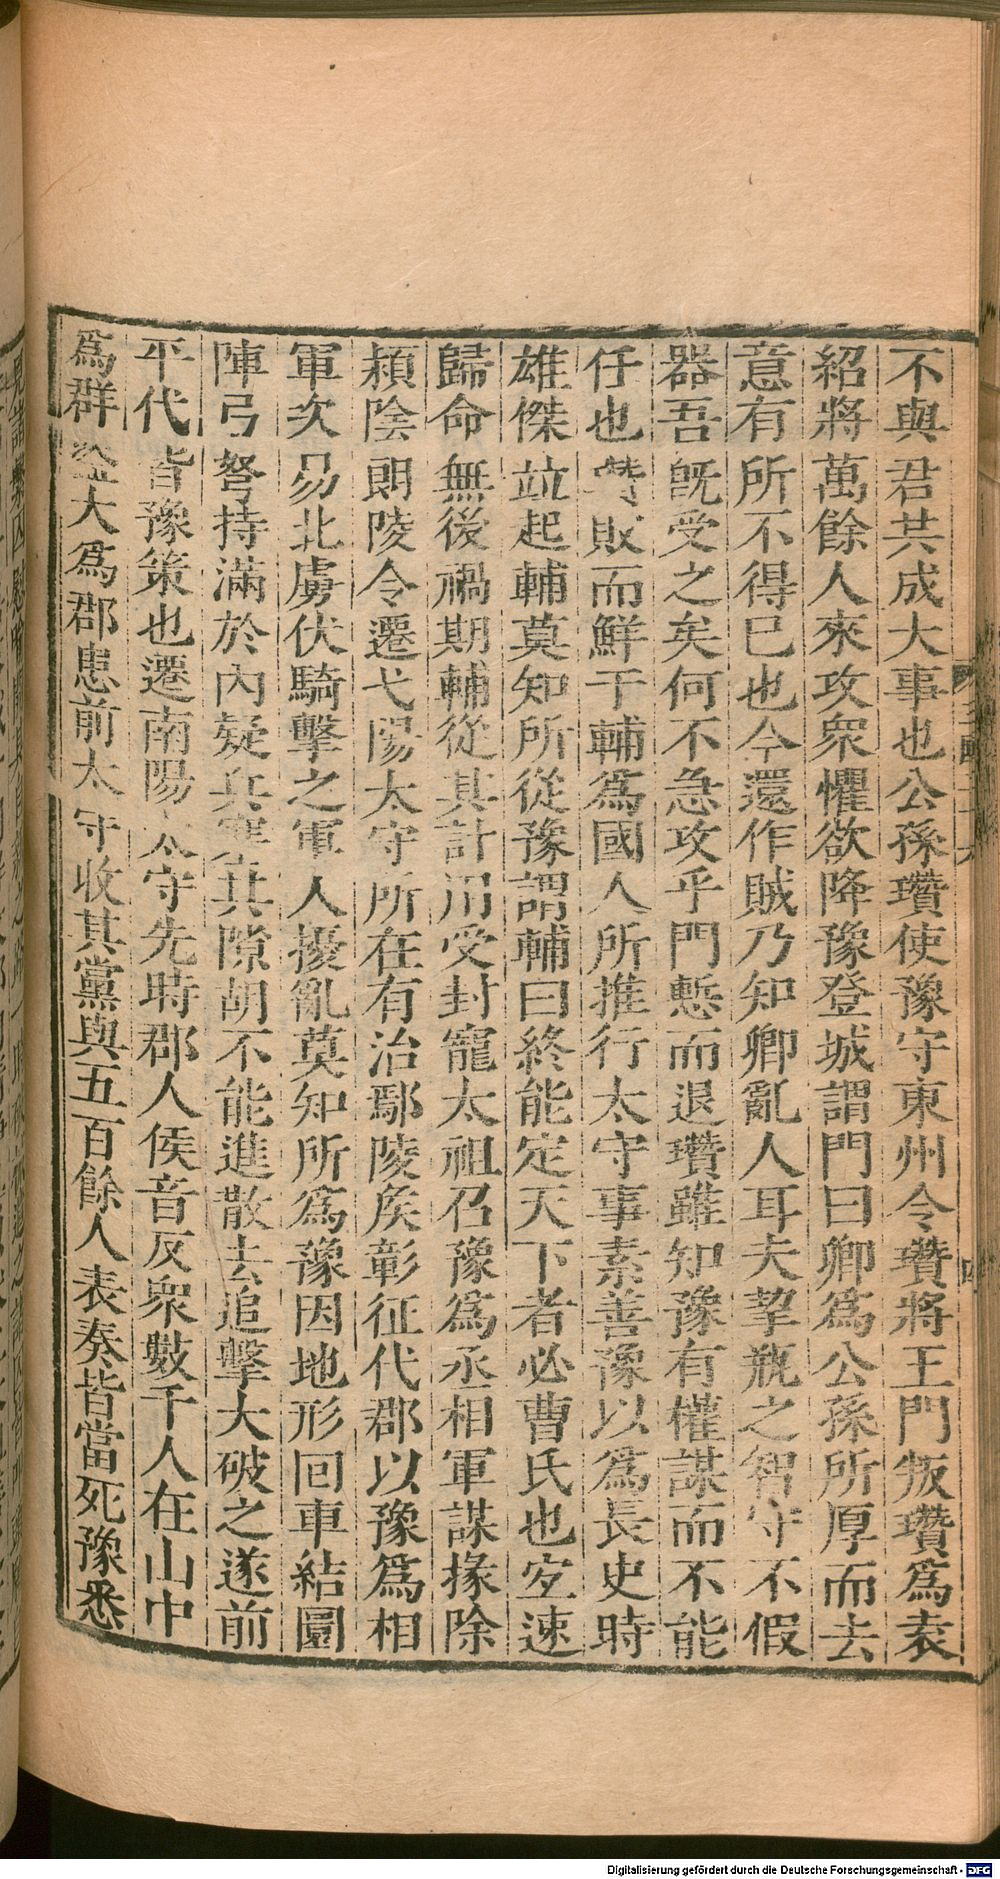 不與君共成大事也公孫瓚使豫守東州令瓚將王門叛瓚爲袁
紹將萬餘人來攻衆懼欲降豫登城謂門曰卿爲公孫所厚而去
意有所不得已也今還作賊乃知卿亂人耳夫挈瓶之智守不假
器吾旣受之矣何不急攻乎門慙而退瓚雖知豫有權謀而不能
任也瓚敗而鮮于輔爲國人所推行太守事素善豫以爲長史時
雄傑竝起輔莫知所從豫謂輔曰終能定天下者必曹氏也宜速
歸命無後禍期輔從其計用受封寵太祖召豫爲丞相軍謀掾除
潁陰朗陵令遷弋陽太守所在有治鄢陵侯彰征代郡以豫爲相
軍次易北虜伏騎擊之軍人擾亂莫知所爲豫因地形回車結圜
陣弓弩持滿於內疑兵塞其隙胡不能進散去追擊大破之遂前
平代皆豫策也遷南陽太守先時郡人侯音反衆數千人在山中
爲群盜大爲郡患前太守收其黨與五百餘人表奏皆當死豫悉
Digitalisierung gefördert durch die Deutsche Forschungsgemeinschaft - DFG